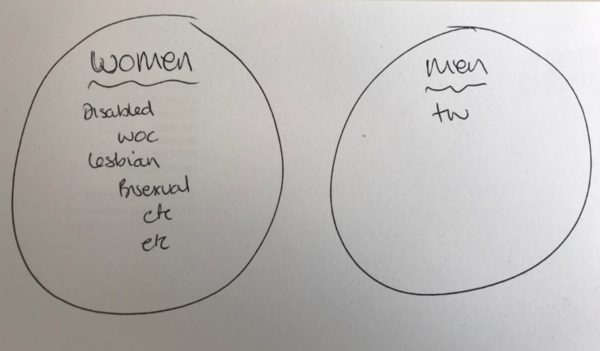 women
Disabled
WOC
Lesbian
Bisexual
etc
etc
men
tw